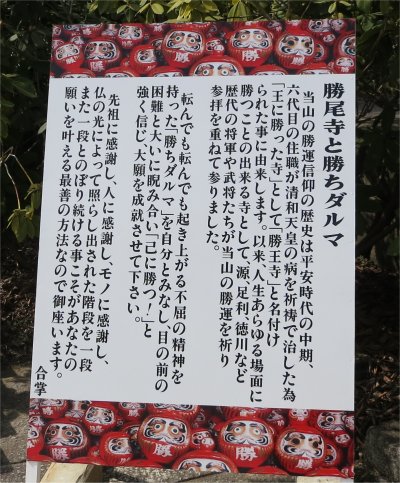 勝尾寺と勝ちダルマ
当山の勝運信仰の歴史は平安時代の中期、
六代目の住職が清和天皇の病を祈祷で治した為
「王に勝った寺」として「勝王寺」と名付け
られた事に由来します。以来、人生あらゆる場面に
勝つことの出来る寺として、源、足利、徳川など
歴代の将軍や武将たちが当山の勝運を祈り
参拝を重ねて参りました。
転んでも転んでも起き上がる不屈の精神を
持った「勝ちダルマ」を自分とみなし、目の前の
困難と大いに睨み合い「己に勝つ!」と
強く信じ、大願を成就させて下さい。
先祖に感謝し、人に感謝し、モノに感謝し、
仏の光によって照らし出された階段を一段
また一段とのぼり続ける事こそがあなたの
願いを叶える最善の方法なので御座います。
合掌
勝
勝
勝
勝